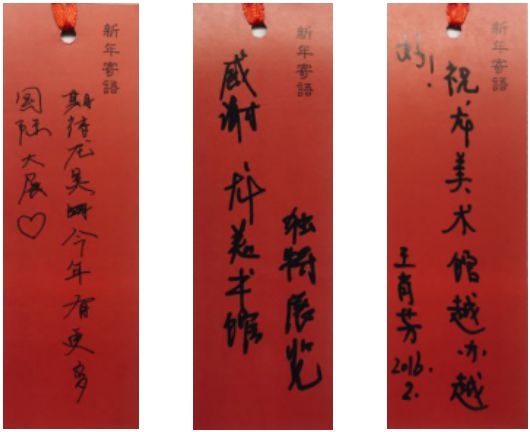 新年寄語
期待龙美今年有更多
国际大展♡
新年寄語
感谢龙美术馆
独特展览
新年寄語
祝龙美术馆越办越
好!
王肖芳
2016.
2.